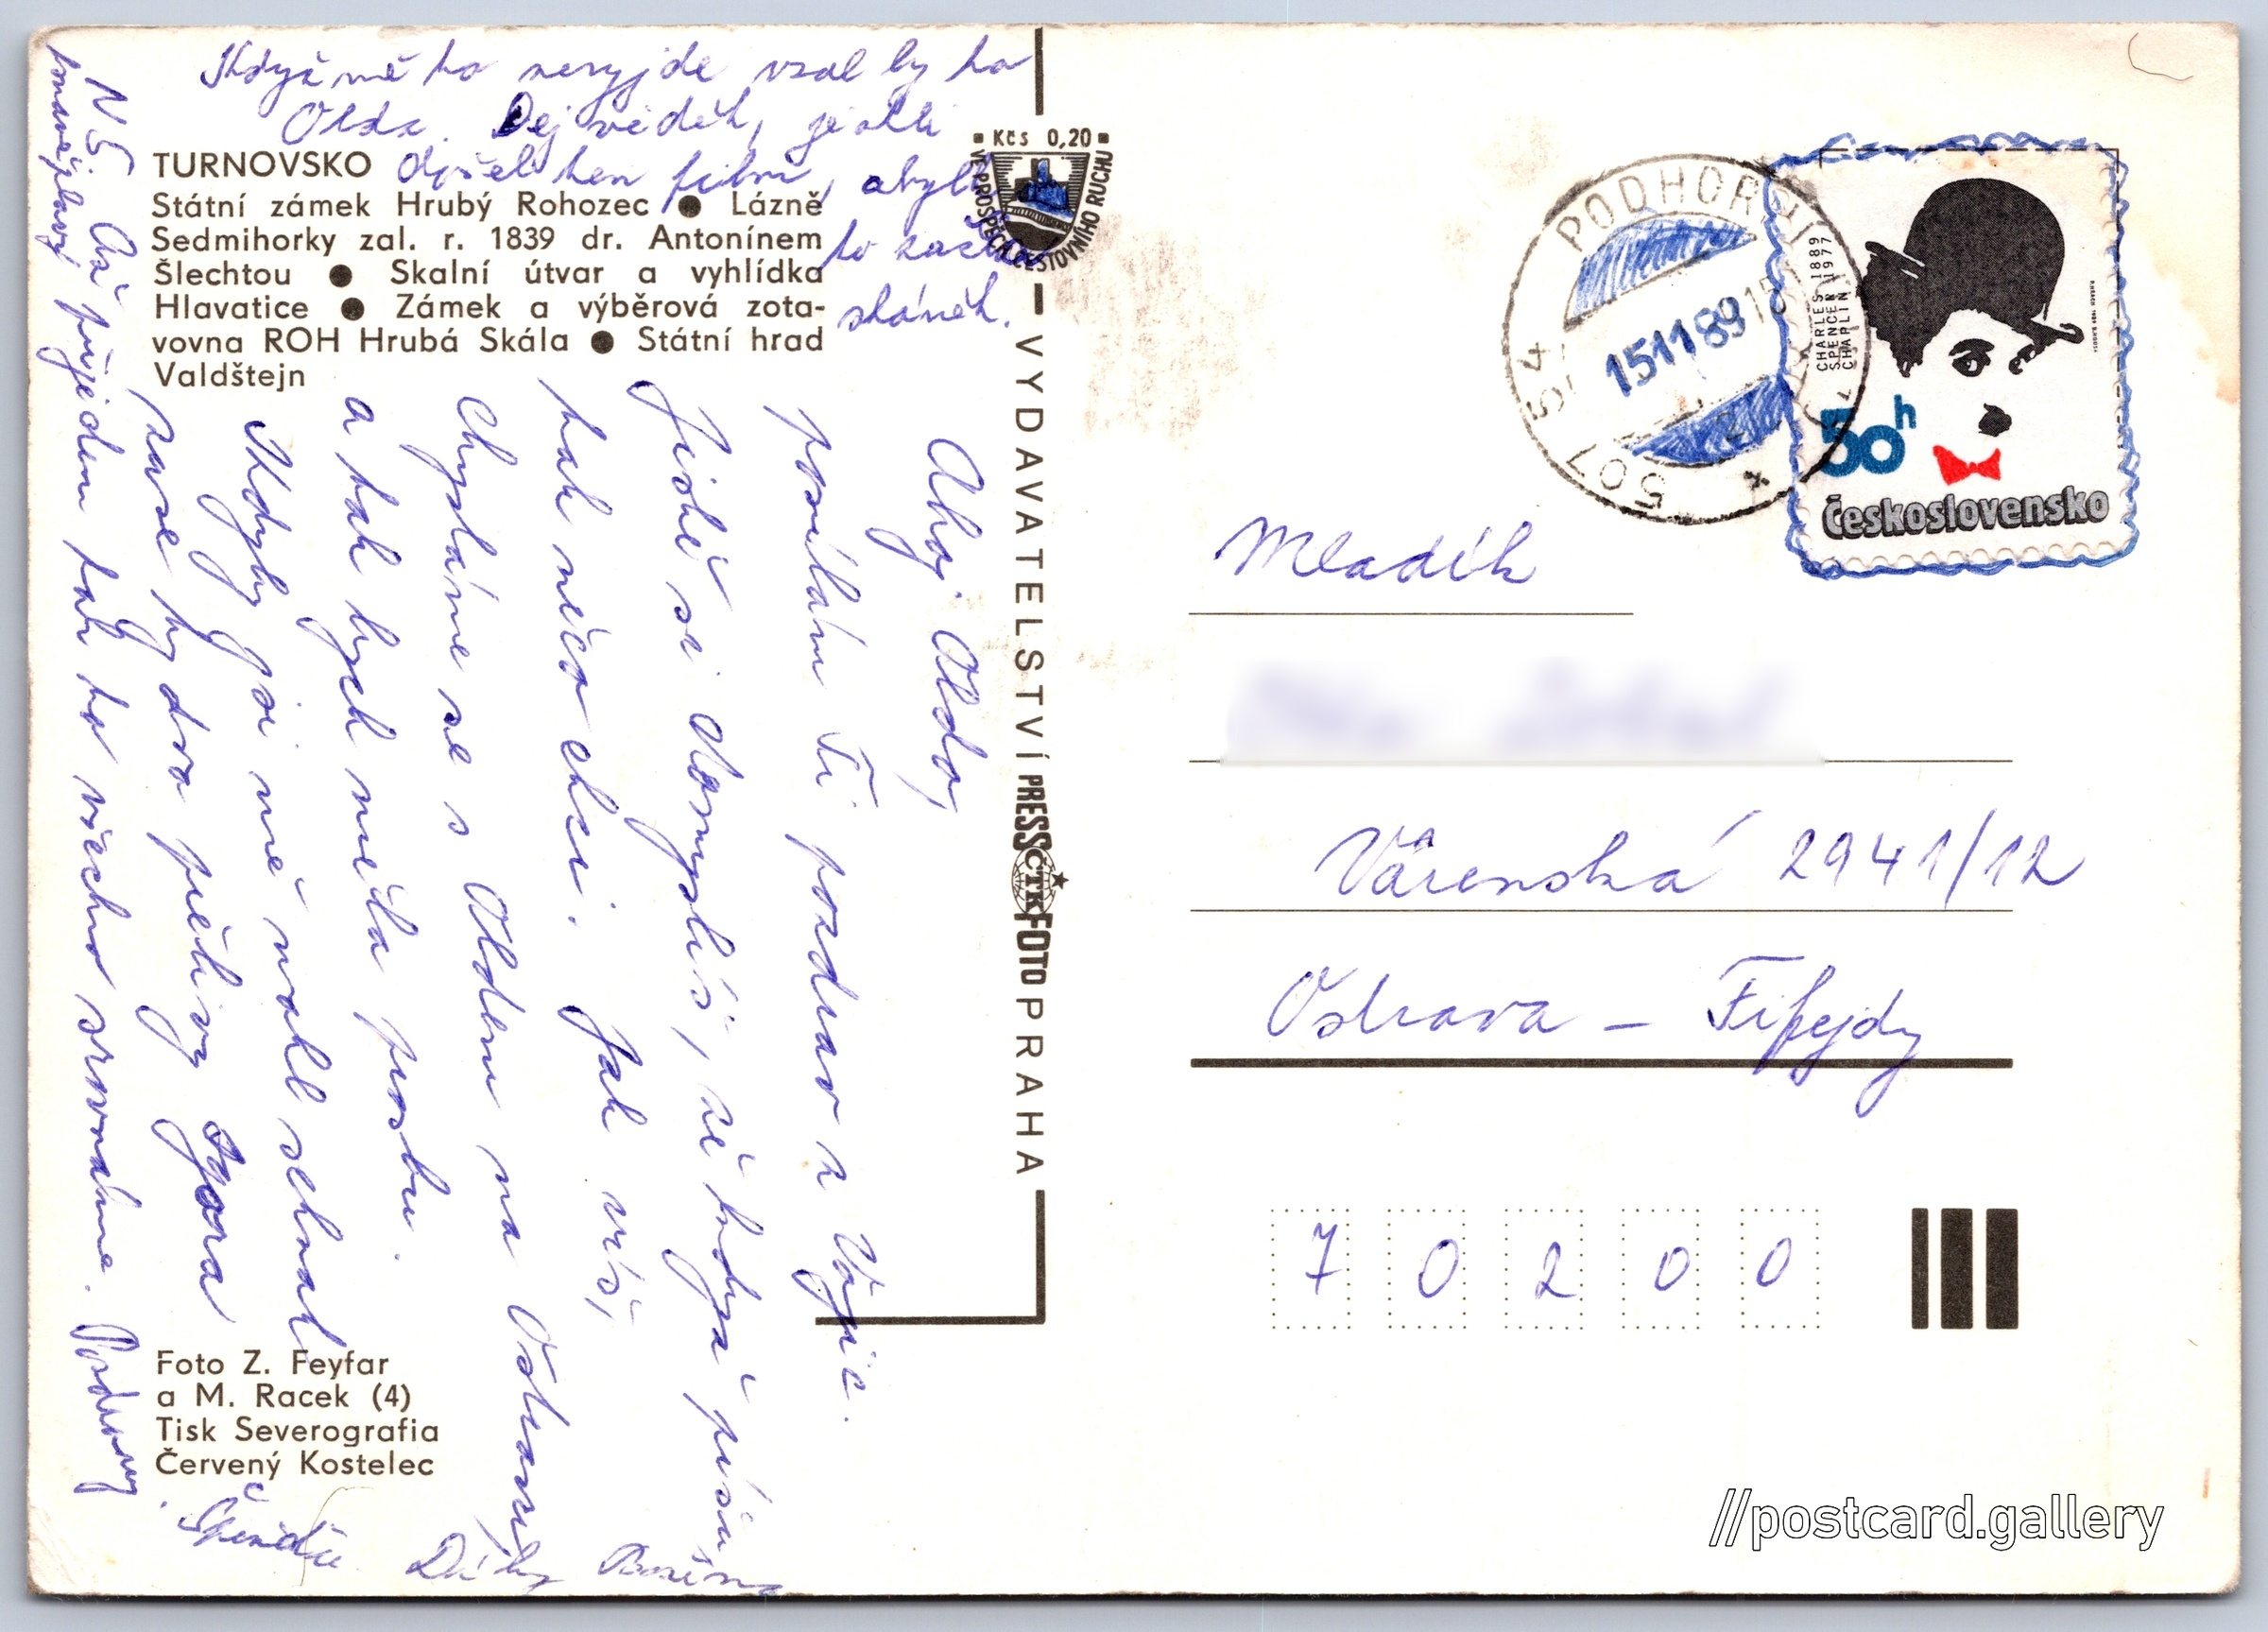 Když mě to nevyjde vzal by to
Olda. Dej vědět, jestli
došel ten film, abych
to začla
shánět.
Kčs 0,20
VE PROSPĚCH CESTOVNÍHO RUCHU
TURNOVSKO
Státní zámek Hrubý Rohozec ● Lázně
Sedmihorky zal. r. 1839 dr. Antonínem
Šlechtou ● Skalní útvar a vyhlídka
Hlavatice ● Zámek a výběrová zota-
vovna ROH Hrubá Skála ● Státní hrad
Valdštejn
Ahoj Oldo,
posílám Ti pozdrav z
Jistě si domyslíš, že když píšu
tak něco chci. Jak víš,
chystáme se s Oldem na Ostravu
a tak bych měla prosbu.
Kdyby jsi mě mohl sehnat
zase by dva
Až přijedem tak to všechno srovnáme. Pozdravy
Díky Božena
Foto Z. Feyfar
a M. Racek (4)
Tisk Severografia
Červený Kostelec
VYDAVATELSTVÍ PRESSFOTO PRAHA
ČTK
PODHORNÍ
507 54
15 11 89 15
CHARLES 1889
SPENCER 1977
CHAPLIN
50h
Československo
Mladík
Varenská 2941/12
Ostrava – Fifejdy
7 0 2 0 0
//postcard.gallery